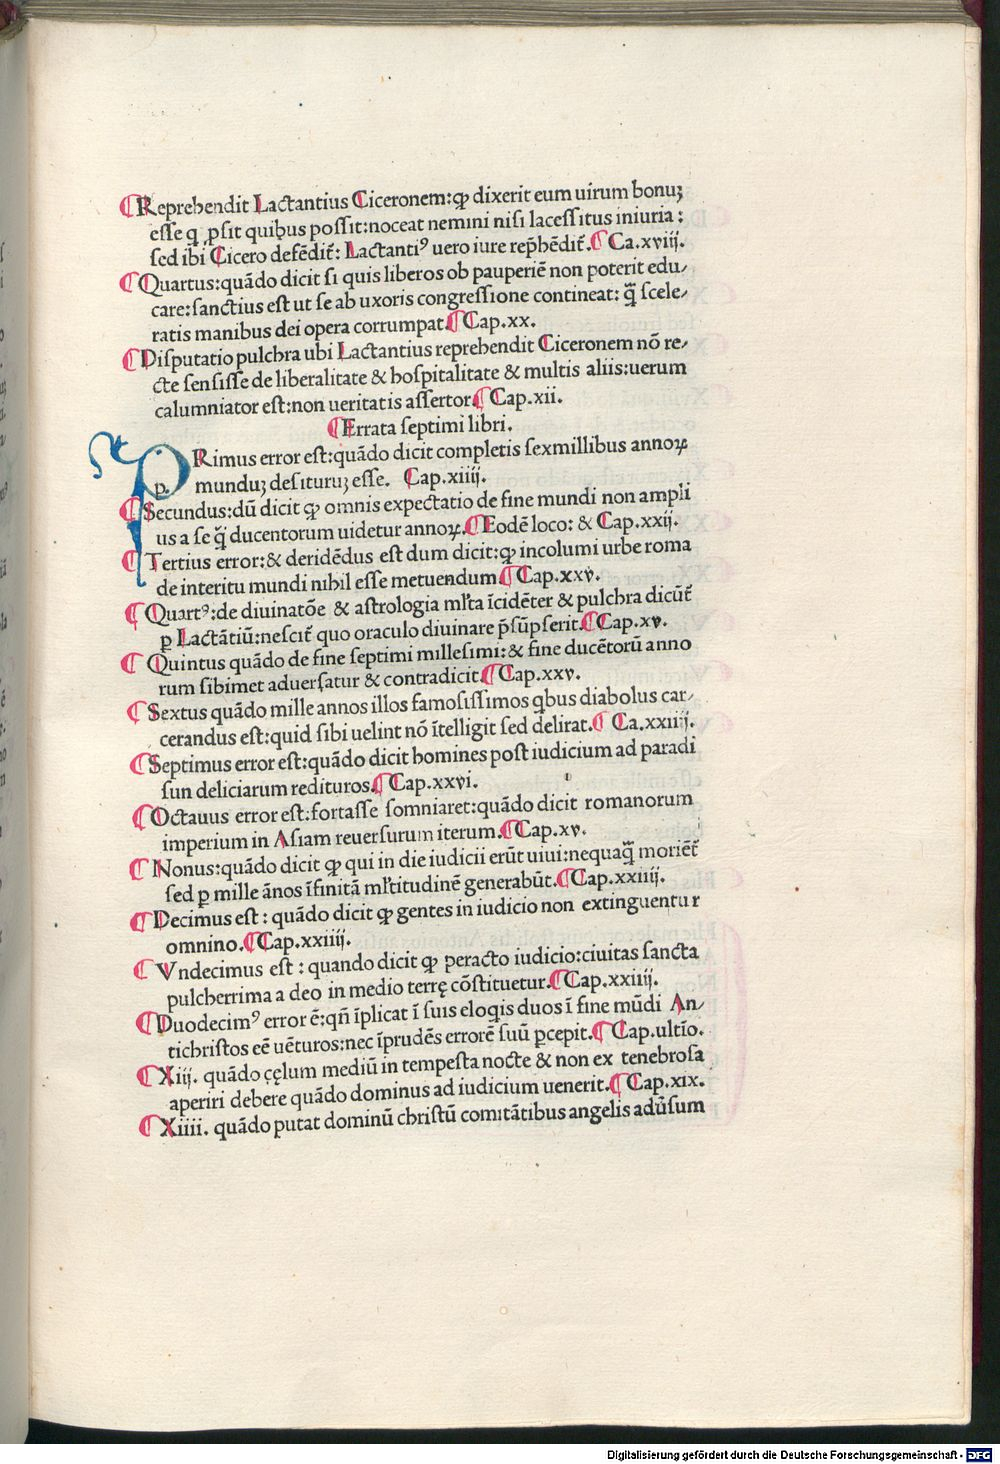 ¶Reprehendit Lactantius Ciceronem:ꝙ dixerit eum uirum bonuꝫ
esse q ꝓsit quibus possit:noceat nemini nisi lacessitus iniuria :
sed ibi Cicero defēdit᷑: Lactantiꝰ uero iure rep̄hēdit᷑.¶Ca.xviij.
¶Quartus:quādo dicit si quis liberos ob pauperiē non poterit edu⸗
care:sanctius est ut se ab uxoris congressione contineat: q̄̃ scele⸗
ratis manibus dei opera corrumpat.¶Cap.xx.
¶Disputatio pulchra ubi Lactantius reprehendit Ciceronem nō re⸗
cte sensisse de liberalitate & hospitalitate & multis aliis:uerum
calumniator est:non ueritatis assertor.¶Cap.xii.
¶Errata septimi libri.
PRimus error est:quādo dicit completis sexmillibus annoꝝ
munduꝫ desituruꝫ esse. Cap.xiiij.
¶Secundus:dū dicit ꝙ omnis expectatio de fine mundi non ampli
us a se q̄̃ ducentorum uidetur annoꝝ.¶Eodē loco: & Cap.xxij.
¶Tertius error:& deridēdus est dum dicit:ꝙ incolumi urbe roma
de interitu mundi nihil esse metuendum¶Cap.xxv.
¶Quartꝰ:de diuinatōe & astrologia ml'ta īcidēter & pulchra dicūt᷑
ꝑ Lactātiū:nescit᷑ quo oraculo diuinare p̄sūpserit.¶Cap.xv.
¶Quintus quādo de fine septimi millesimi:& fine ducētorū anno
rum sibimet aduersatur & contradicit.¶Cap.xxv.
¶Sextus quādo mille annos illos famosissimos qbus diabolus car⸗
cerandus est:quid sibi uelint nō ītelligit sed delirat.¶Ca.xxiiij.
¶Septimus error est:quādo dicit homines post iudicium ad paradi
sun deliciarum redituros.¶Cap.xxvi.
¶Octauus error est:fortasse somniaret:quādo dicit romanorum
imperium in Asiam reuersurum iterum.¶Cap.xv.
¶Nonus:quādo dicit ꝙ qui in die iudicii erūt uiui:nequaq̄̃ moriēt᷑
sed ꝑ mille ānos īfinitā ml'titudinē generabūt.¶Cap.xxiiij.
¶Decimus est : quādo dicit ꝙ gentes in iudicio non extinguentur
omnino.¶Cap.xxiiij.
¶Vndecimus est : quando dicit ꝙ peracto iudicio:ciuitas sancta
pulcherrima a deo in medio terrę cōstituetur.¶Cap.xxiiij.
¶Duodecimꝰ error ē:qn̄ īplicat ī suis eloqis duos ī fine mūdi An⸗
tichristos eē uēturos:nec īprudēs errorē suū ꝑcepit.¶Cap.ultīo.
¶Xiij. quādo cęlum mediū in tempesta nocte & non ex tenebrosa
aperiri debere quādo dominus ad iudicium uenerit.¶Cap.xix.
¶Xiiii. quādo putat dominū christū comitātibus angelis adu̓sum
Digitalisierung gefördert durch die Deutsche Forschungsgemeinschaft - DFG